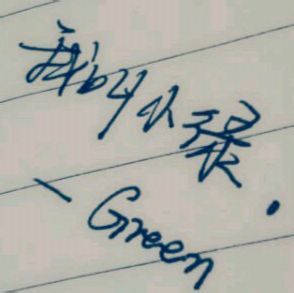 我叫小绿.
- Green